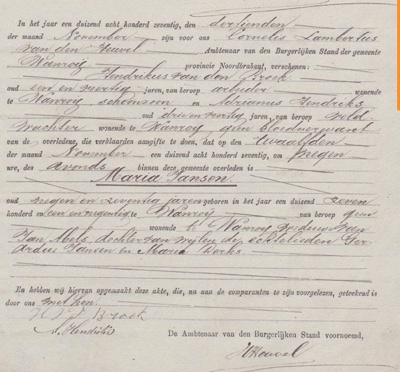 In het jaar een duizend acht honderd zeventig, den dertienden
der maand November zijn voor ons Cornelis Lambertus
van den Heuvel Ambtenaar van den Burgerlijken Stand der gemeente
Wanroij provincie Noordbrabant, verschenen:
Hendrikus van den Broek
oud een en veertig jaren, van beroep arbeider wonende
te Wanroij schoonzoon en Adrianus Hendriks
oud drie en veertig jaren, van beroep veld
wachter wonende te Wanroij geen bloedverwant
van de overledene, die verklaarden aangifte te doen, dat op den twaalfden
der maand November een duizend acht honderd zeventig, om negen
ure, des avonds binnen deze gemeente overleden is
Maria Jansen
oud negen en zeventig jaren geboren in het jaar een duizend zeven
honderd een en negentig te Wanroij van beroep geen
wonende te Wanroij weduwe van
Jan Abels dochter van wijlen de echtelieden Ger
ardus Jansen en Maria Derks
En hebben wij hiervan opgemaakt deze akte, die, na aan de comparanten te zijn voorgelezen, geteekend is
door ons met hen.
H V D Broek
A. Hendriks
De Ambtenaar van den Burgerlijken Stand voornoemd,
Heuvel